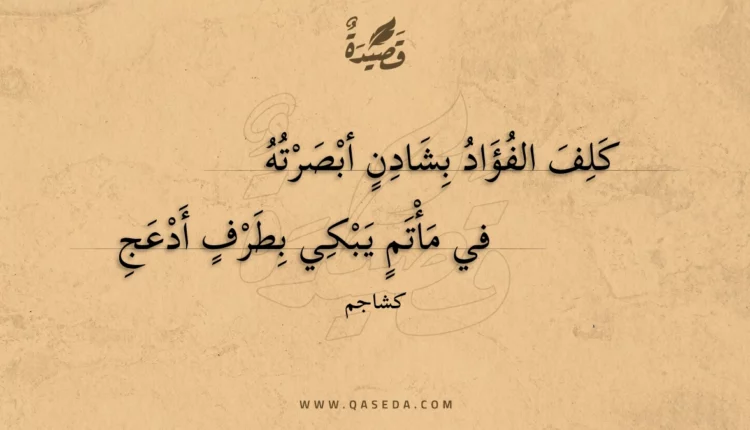 قَصِيدَةٌ
كَلِفَ الفُؤَادُ بِشَادِنٍ أبْصَرْتُهُ
في مَأْتَمٍ يَبْكِي بِطَرْفٍ أَدْعَجِ
كشاجم
WWW.QASEDA.COM